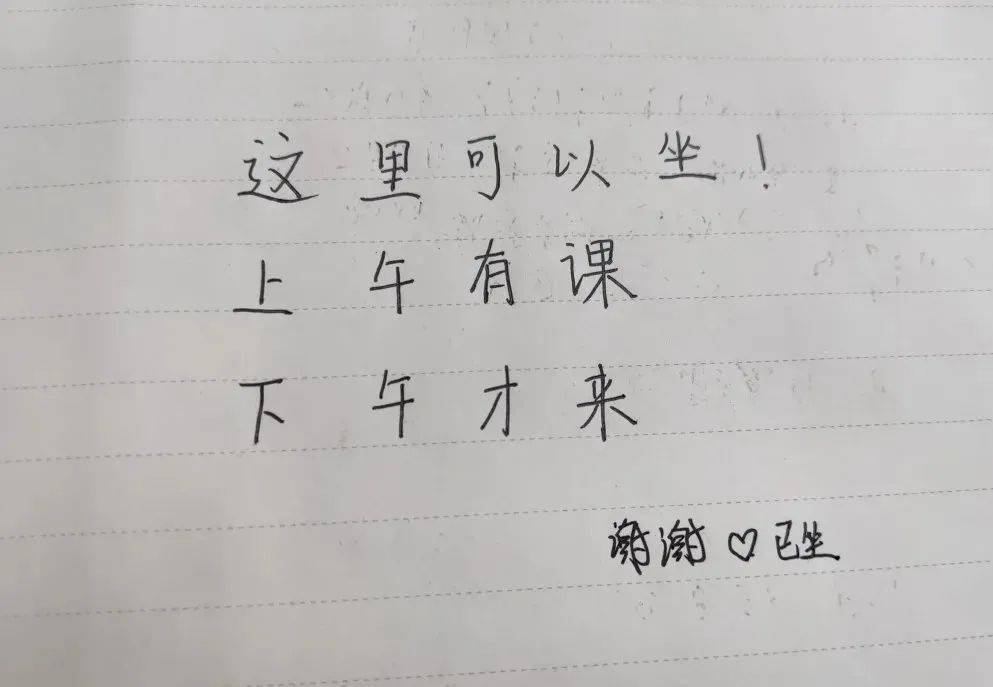 这里可以坐！
上午有课
下午才来
谢谢♡已坐